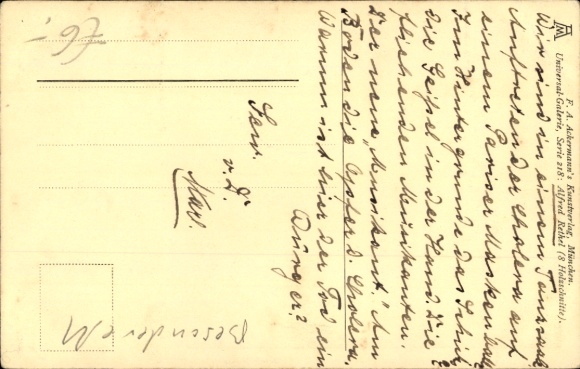 F. A. Ackermann's Kunstverlag, München.
Universal-Galerie, Serie 218: Alfred Rethel (8 Holzschnitte).
Wir sind in einem Tanzsaal
Auftreten der Cholera auf
einem Pariser Maskenball
Im Hintergrunde das
die Geißel in der Hand. Die
fliehenden Musikanten.
Der neue "Musikant." Am
Boden die Opfer d. Cholera.
Warum ist hier der Tod ein
Dünger?
v. D.
76.-
Besonder